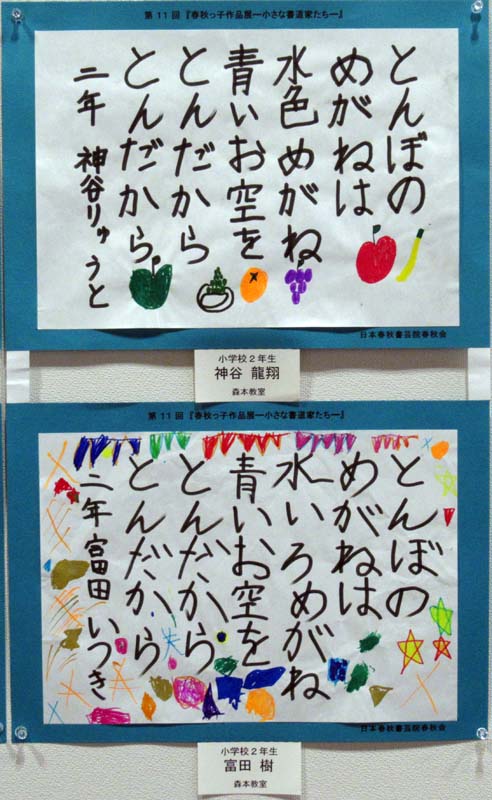 第11回『春秋っ子作品展ー小さな書道家たちー』
とんぼの
めがねは
水色めがね
青いお空を
とんだから
とんだから
二年 神谷りゅうと
日本春秋書芸院春秋会
小学校2年生
神谷 龍翔
森本教室
第11回『春秋っ子作品展ー小さな書道家たちー』
とんぼの
めがねは
水いろめがね
青いお空を
とんだから
とんだから
二年 富田いつき
日本春秋書芸院春秋会
小学校2年生
富田 樹
森本教室